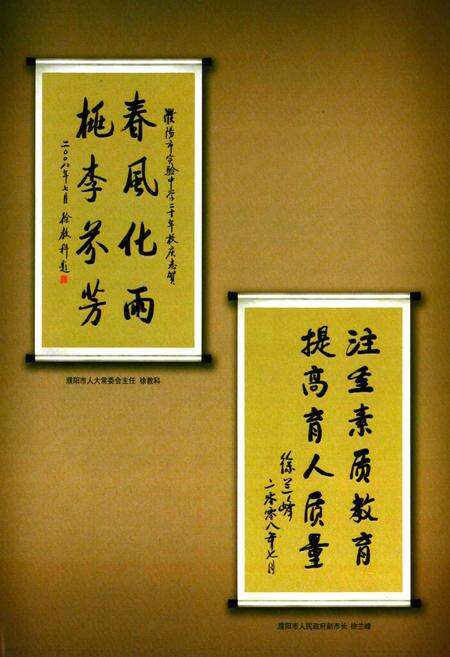 濮阳市实验中学二十年校庆志贺
春风化雨
桃李芬芳
二〇〇八年七月 徐教科题
濮阳市人大常委会主任 徐教科
注重素质教育
提高育人质量
徐兰峰
二零零八年七月
濮阳市人民政府副市长 徐兰峰